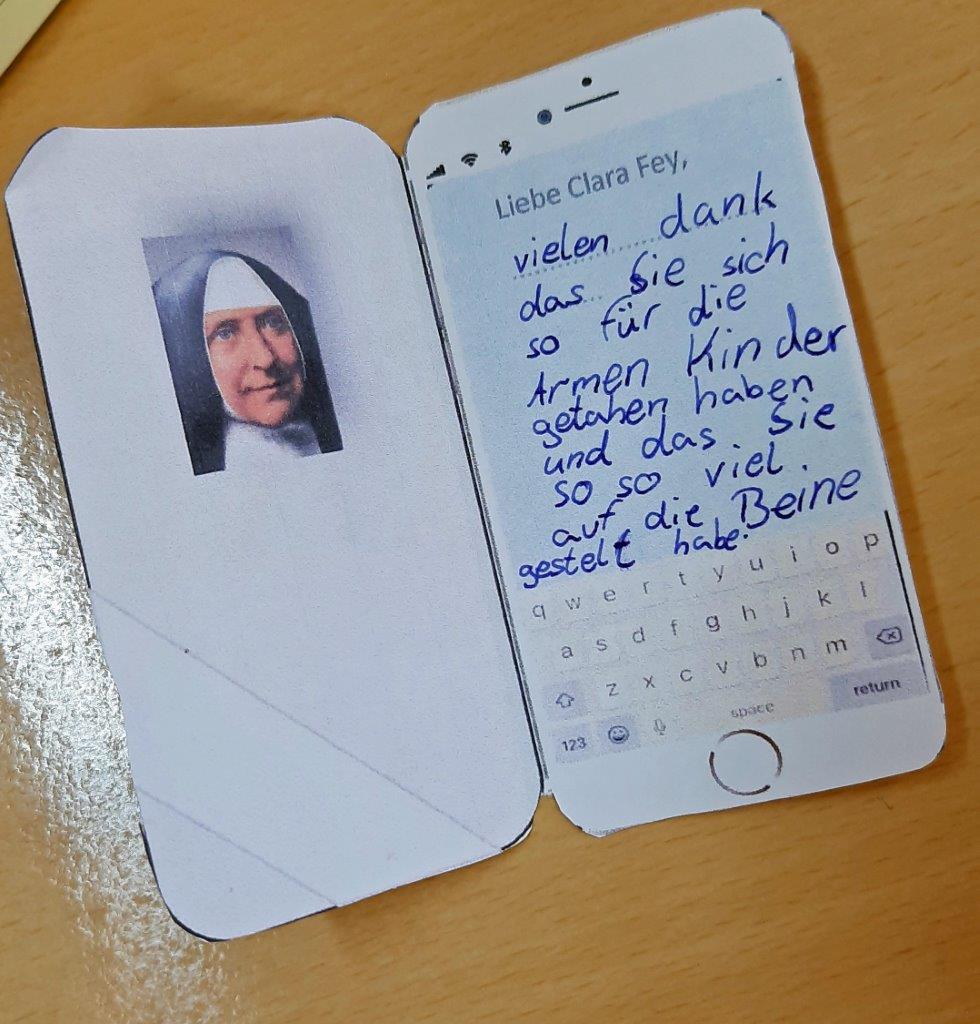 Liebe Clara Fey,
vielen dank
das Sie sich
so für die
Armen Kinder
getahen haben
und das Sie
so so viel
auf die Beine
gestelt habe.
q w e r t y u i o p
a s d f g h j k l
z x c v b n m
123 space return